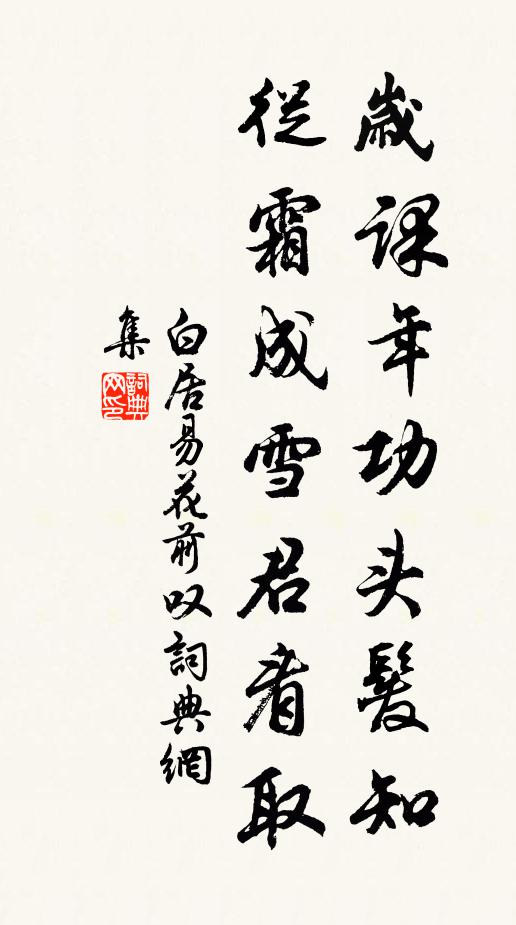 歲課年功头髮知
從霜成雪君看取
白居易花前叹詞典網
集
詞典
网印